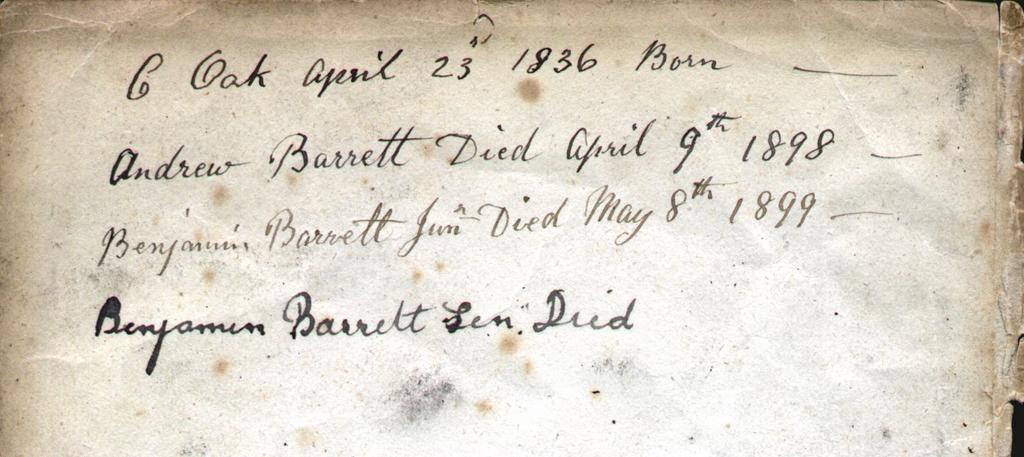 C Oak April 23rd 1836 Born —
Andrew Barrett Died April 9th 1898 —
Benjamin Barrett Junr Died May 8th 1899 —
Benjamin Barrett Sen. Died